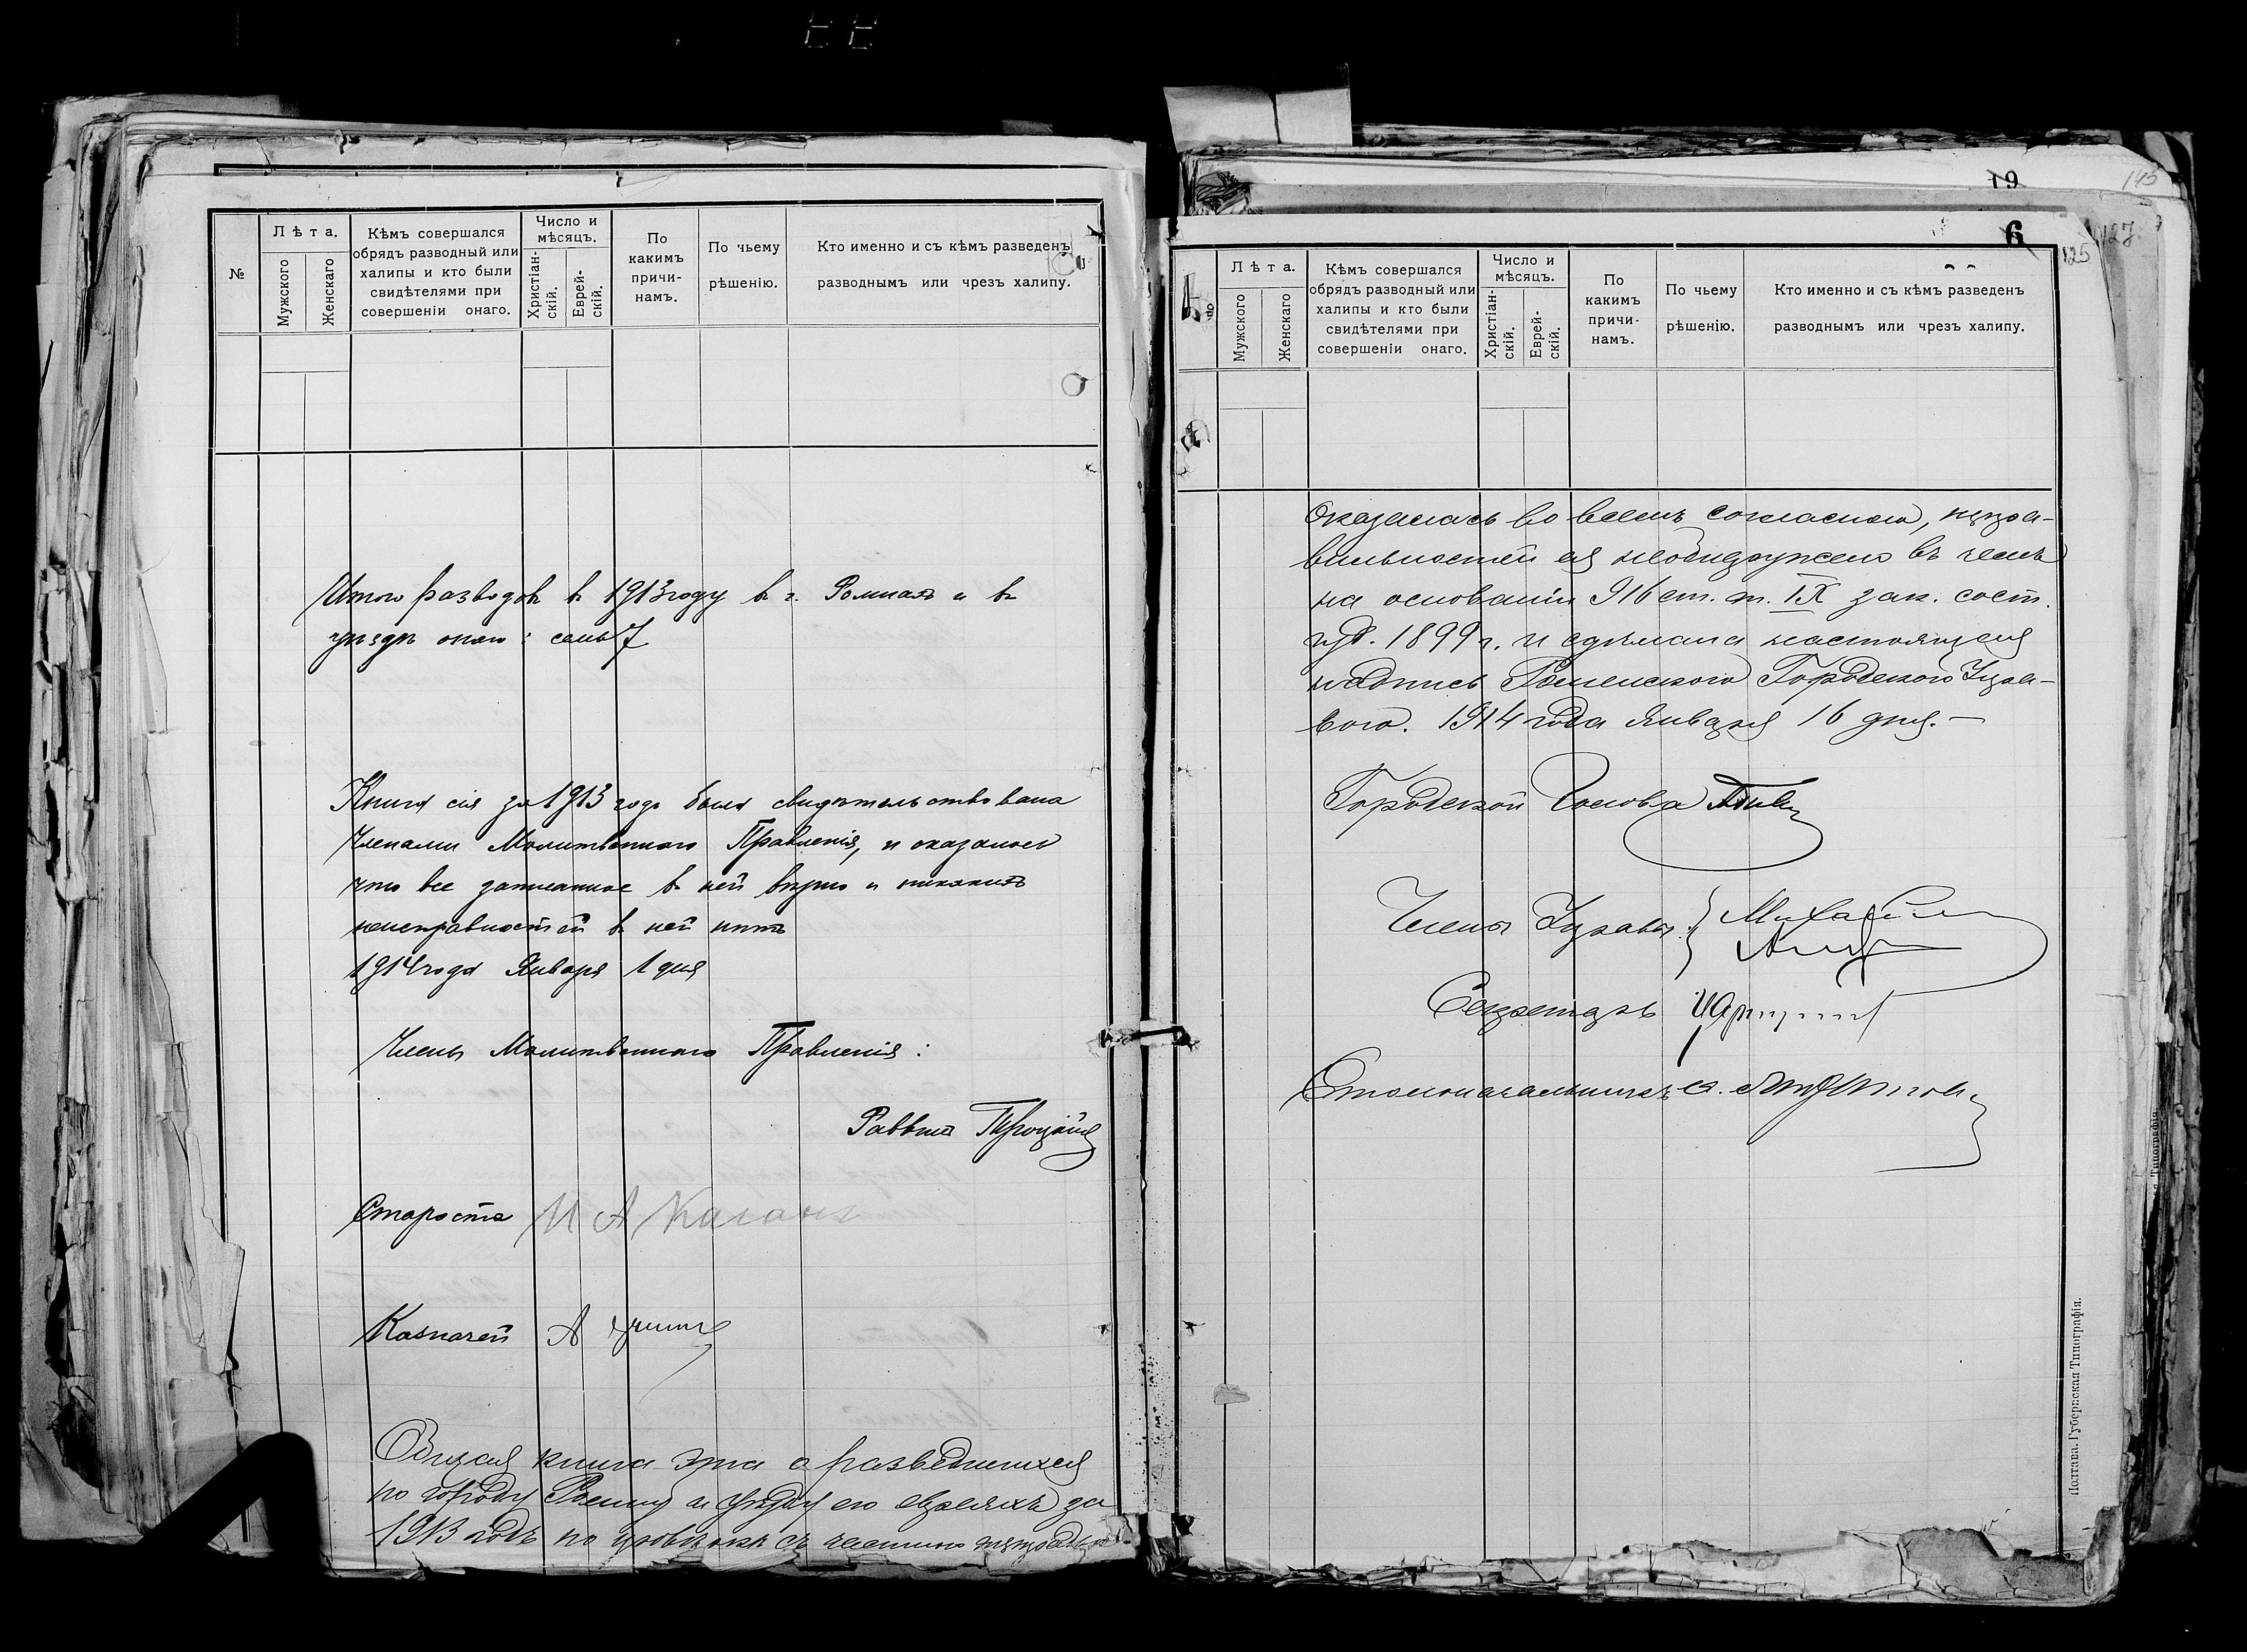 №
Лѣта.
Мужского
Женскаго
Кѣмъ совершался
обрядъ разводный или
халипы и кто были
свидѣтелями при
совершеніи онаго.
Число и
мѣсяцъ.
Христіан-
скій.
Еврей-
скій.
По
какимъ
причи-
намъ.
По чьему
рѣшенію.
Кто именно и съ кѣмъ разведенъ
разводнымъ или чрезъ халипу.
Итого разводовъ въ 1913 году въ г. Ромнахъ и въ
уѣздѣ онаго: семь 7
Книга сія за 1913 годъ была свидѣтельствована
Членами Молитвеннаго Правленія, и оказалось
что все записанное въ ней вѣрно и никакихъ
неисправностей въ ней нѣтъ
1914 года Января 1 дня
Члены Молитвеннаго Правленія:
Раввинъ
Староста И А Каганъ
Казначей А
Общая книга эта о разведшихся
по городу Ромну и уѣзду его евреяхъ за
1913 годъ по провѣркѣ съ частною тетрадью
19
143
6
125
127
№
Лѣта.
Мужского
Женскаго
Кѣмъ совершался
обрядъ разводный или
халипы и кто были
свидѣтелями при
совершеніи онаго.
Число и
мѣсяцъ.
Христіан-
скій.
Еврей-
скій.
По
какимъ
причи-
намъ.
По чьему
рѣшенію.
Кто именно и съ кѣмъ разведенъ
разводнымъ или чрезъ халипу.
Оказалась во всемъ согласною, непра-
вильностей не обнаружено въ чемъ
на основаніи 916 ст. т. IX зак. сост.
изд. 1899 г. и сдѣлана настоящая
надпись Роменскою Городскою Упра-
вою. 1914 года Января 16 дня.—
Городской Голова
Члены Управы:
Секретарь
Столоначальникъ
Полтава. Губернская Типографія.